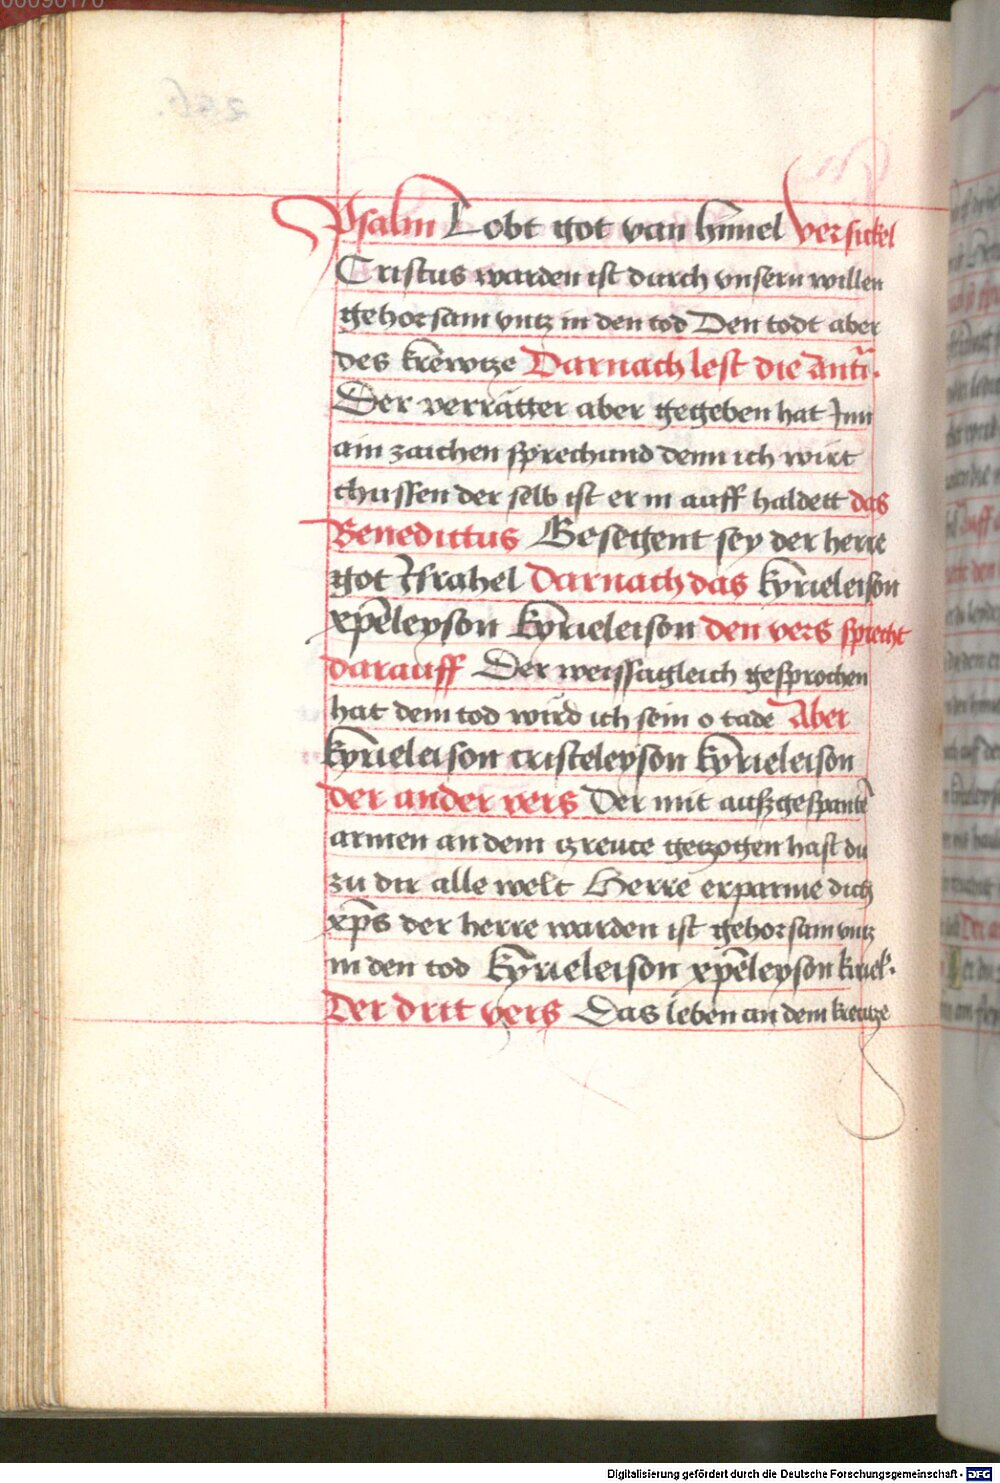 Psalm Lobt got van himel versickel
Cristus warden ist durch vnsern willen
gehorsam vntz in den tod Den todt aber
des krewtze Darnach lest die Antī.
Der verrätter aber gegeben hat Inn
ain zaichen sprechund denn ich wirt
chussen der selb ist er in auff haldett das
Benedittus Gesegent sey der herre
got Israhel Darnach das kyrieleison
xp̄eleyson kyrieleison den vers sprecht
darauff Der weissagleich gesprochen
hat dem tod wird ich sein o tade Aber
kyrieleison cristeleyson kyrieleison
der ander vers Der mit aufzgespantē
armen an dem czreutce getzogen hast du
zu dir alle welt Herre erparme dich
xp̄s der herre warden ist gehorsam vntz
in den tod kyrieleison xp̄eleyson kiriel.
Der drit vers Das leben an dem kreutze
Digitalisierung gefördert durch die Deutsche Forschungsgemeinschaft - DFG